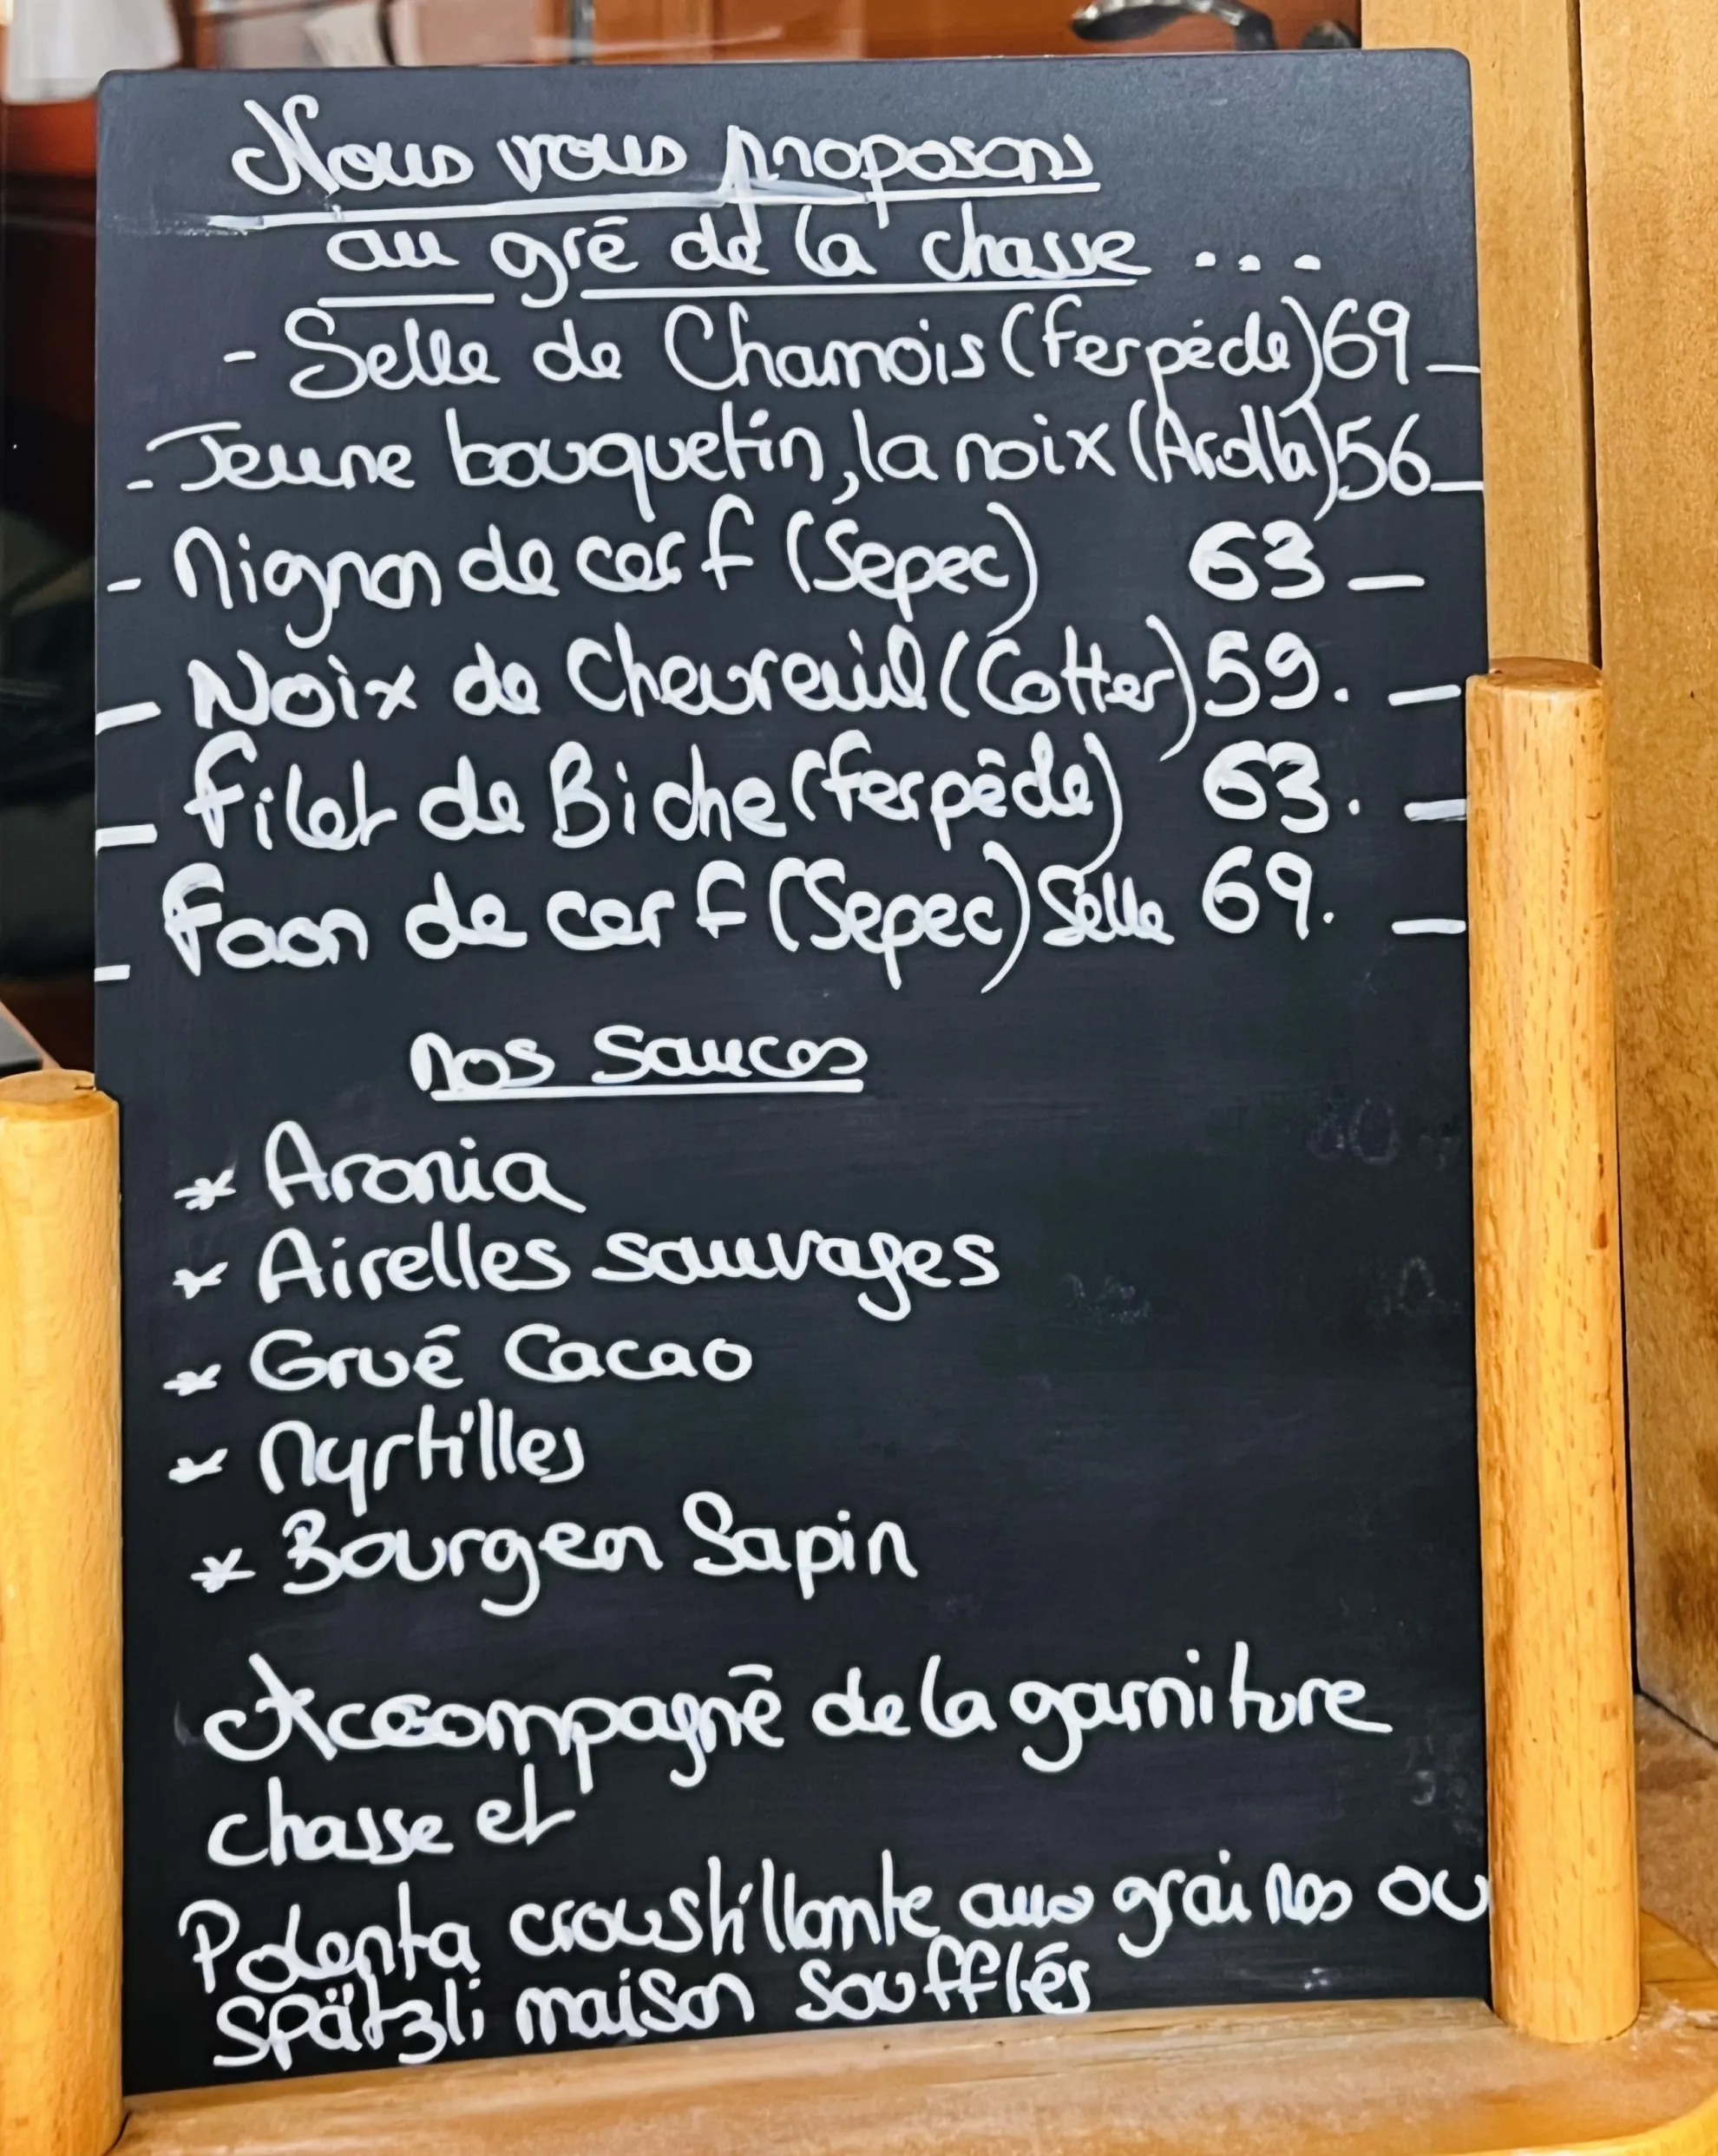 Nous vous proposons
au gré de la chasse ...
- Selle de Chamois (ferpéde) 69 –
- Jeune bouquetin, la noix (Arolla) 56 –
- Mignon de cerf (Sepec) 63 –
– Noix de Chevreuil (Cotter) 59. –
– filet de Biche (ferpéde) 63. –
– faon de cerf (Sepec) Selle 69. –
Nos Sauces
* Aronia
* Airelles sauvages
* Grué Cacao
* Myrtilles
* Bourgeon Sapin
Accompagné de la garniture
chasse et
Polenta croustillante aux graines ou
spätzli maison soufflés